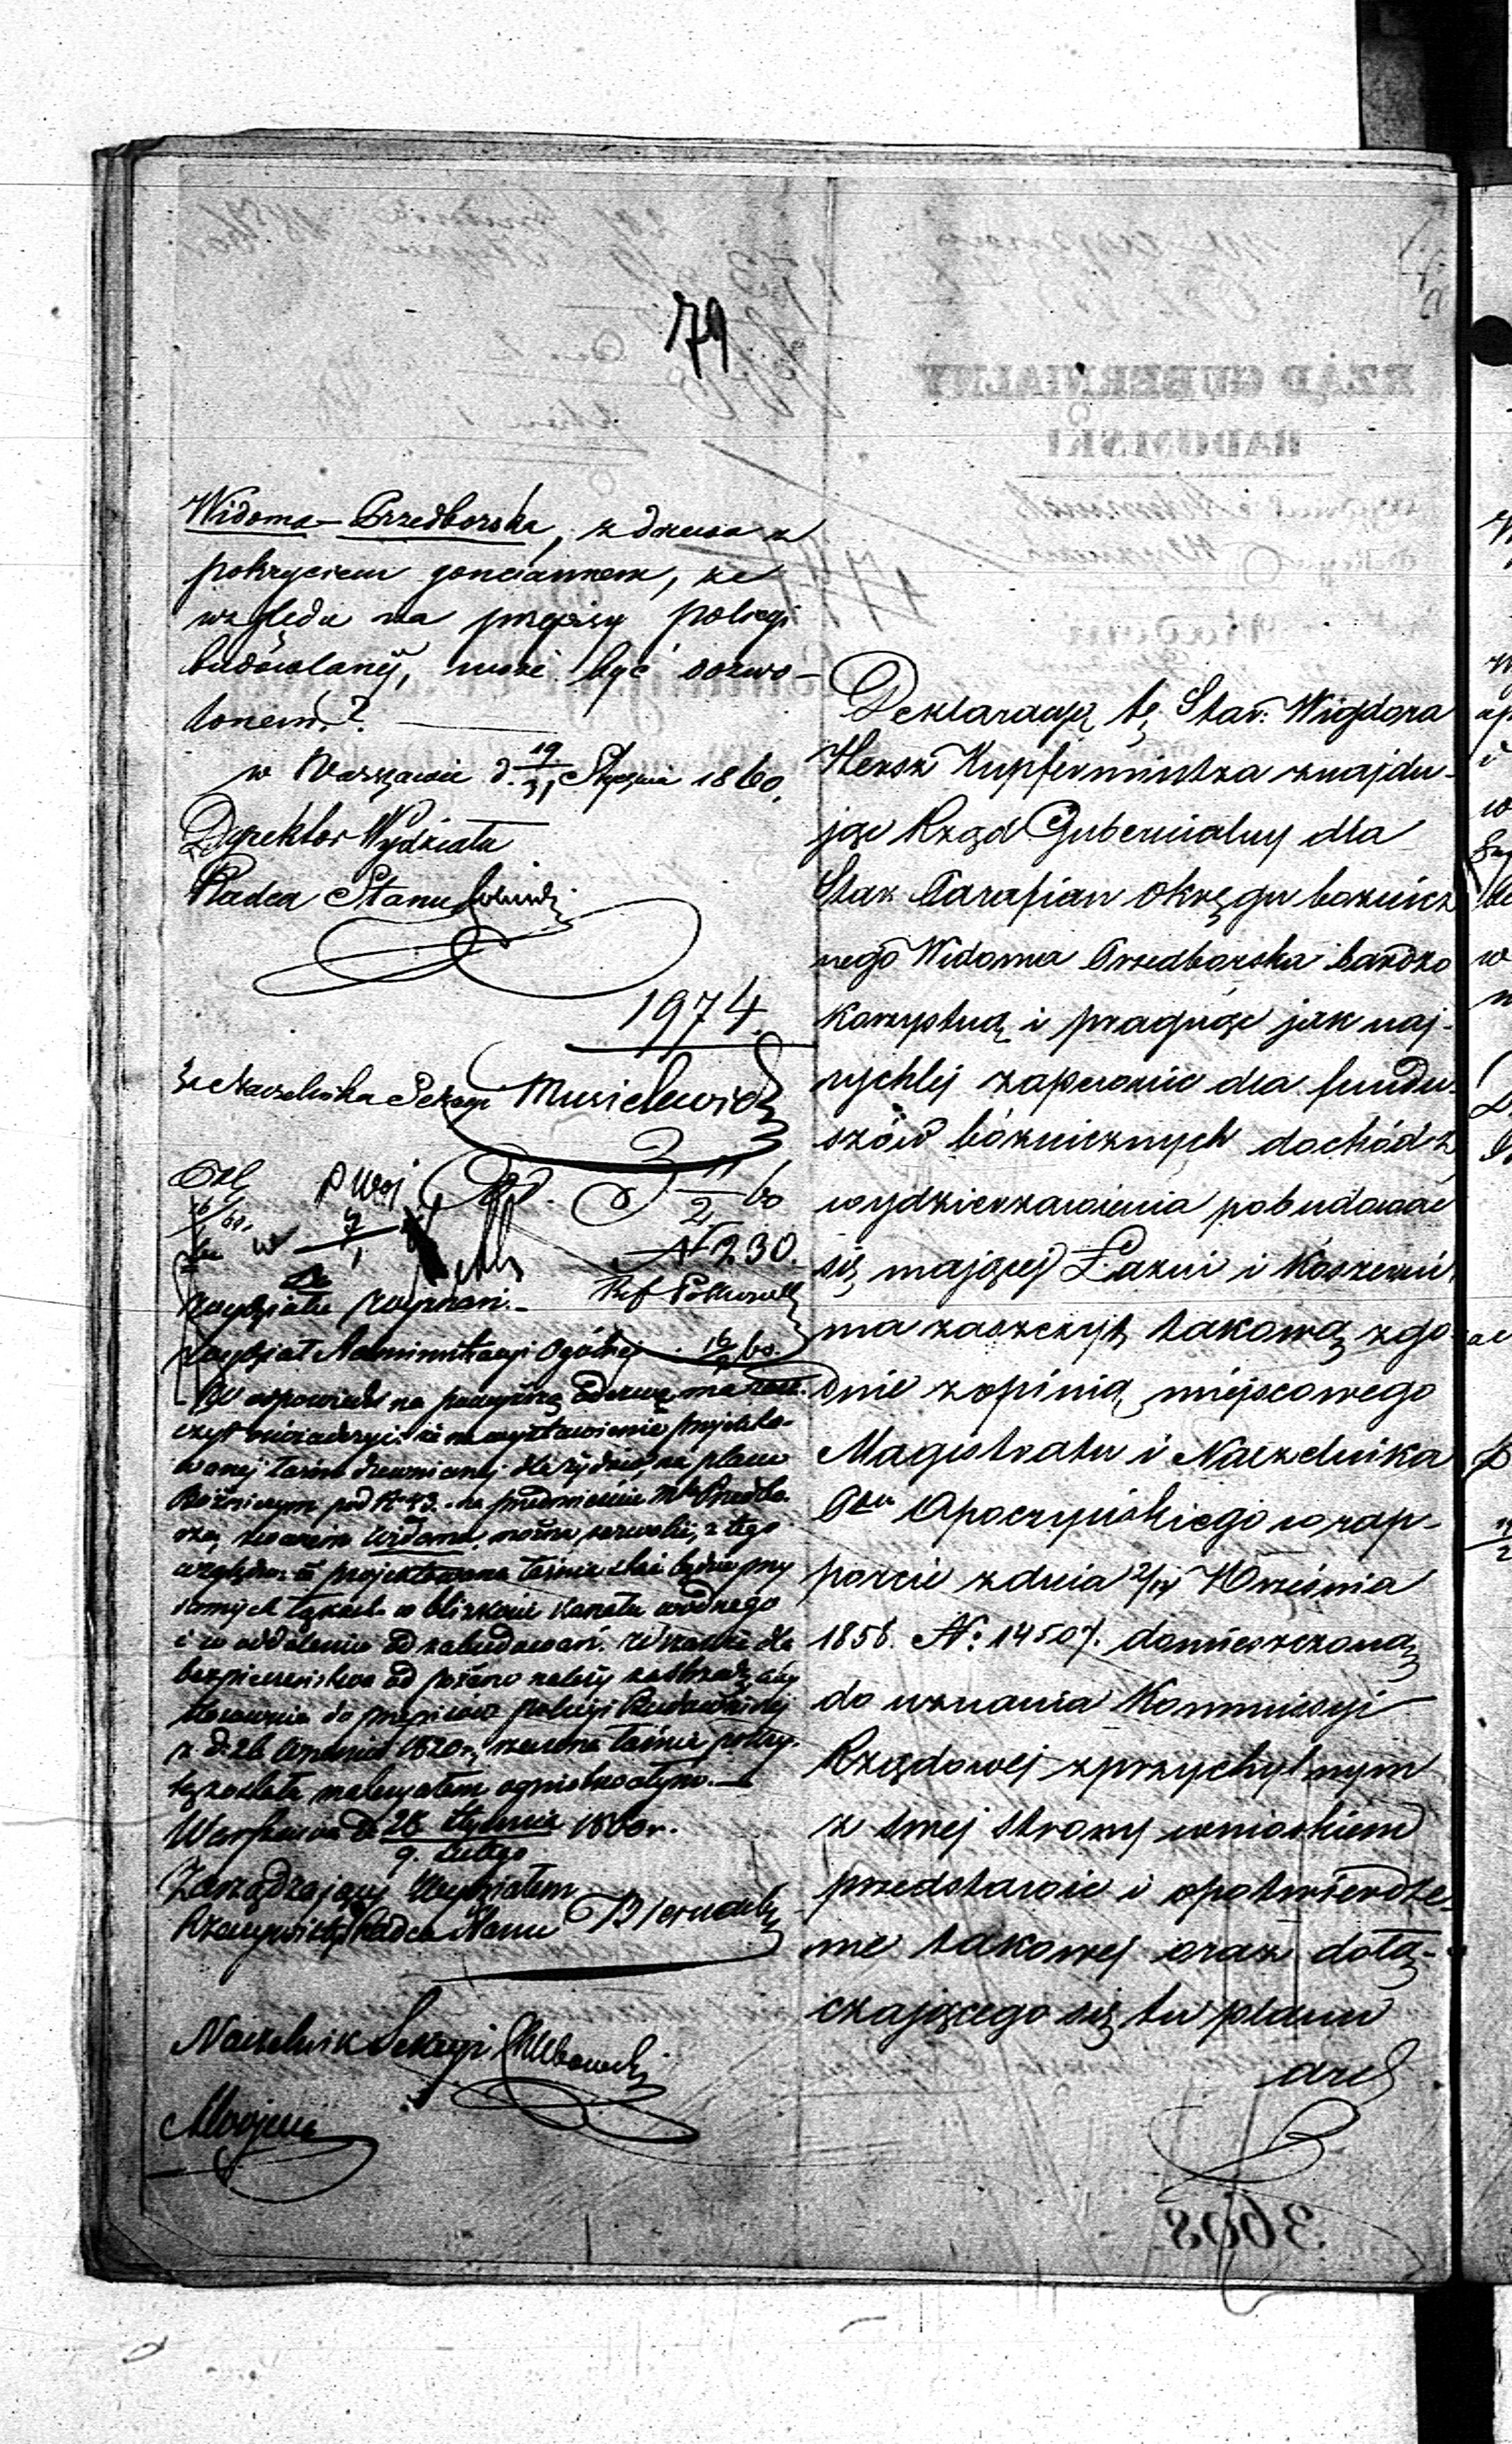 79
Widoma-Przedborska, z drzewa z
pokryciem gonciannem, ze
względu na przepisy policyi
budowlanéj, może być dozwo-
lonem?
w Warszawie d. 19/31 Stycznia 1860.
Dyrektor Wydziału
Radca Stanu
1974.
Za Naczelnika Sekcyi Musielewicz
11/2 60
N 230.
Wydziału
Wydział Administracyi Ogólnej 16/2 60.
W odpowiedzi na powyższą odezwę ma zasz-
czyt oświadczyć: iż na wystawienie projekto-
wanéj łaźni drewnianej dla żydów, na placu
Bóżniczym pod No 43. na przedmieściu Mta Przedbo-
rza, zwanem Widoma, można zezwolić, z tego
względu, iż projektowana łaźnia stać będzie przy
samych łąkach w bliskości kanału wodnego
i w oddaleniu od zabudowań. Wszakże dla
bezpieczeństwa od pożaru należy zastrzedz, aby
stosownie do przepisów policyi Budowlanéj
z d. 26 1820 r. rzeczona łaźnia pokry-
tą została materyałem ogniotrwałym.
Warszawa d. 28 Stycznia / 9. Lutego 1860 r.
Zarządzający Wydziałem
Rzeczywisty Radca Stanu
Naczelnik Sekcyi
Deklaracyą tę Star. Wigdora
Hersz Kupfermintza znajdu-
jąc Rząd Gubernialny dla
Star. Parafian Okręgu bożnicz
nego Widoma Przedborska bardzo
korzystną i pragnąc jak naj-
rychlej zapewnić dla fundu-
szów bóżnicznych dochód z
wydzierżawienia pobudować
się mającej Łaźni i Koszerni
ma zaszczyt takową zgo-
dnie z opinią miejscowego
Magistratu i Naczelnika
Ptu Opoczyńskiego w rap-
porcie z dnia 2/14 Września
1858. No 14507. domieszczoną
do uznania Kommissyi
Rządowej z przychylnym
z swej strony wnioskiem
przedstawić i o potwierdze-
nie takowej oraz dołą-
czającego się tu planu
3608